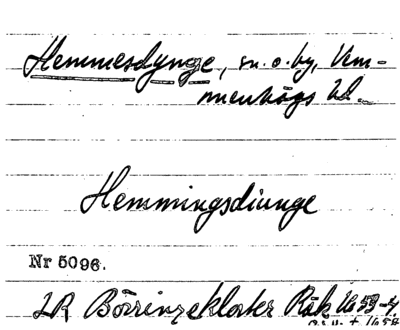 Hemmesdynge, sn. o. by, Vem-
menhögs hd.
Hemmingsdiunge
Nr 5096.
LR Börringekloster Räk. 1653-4.